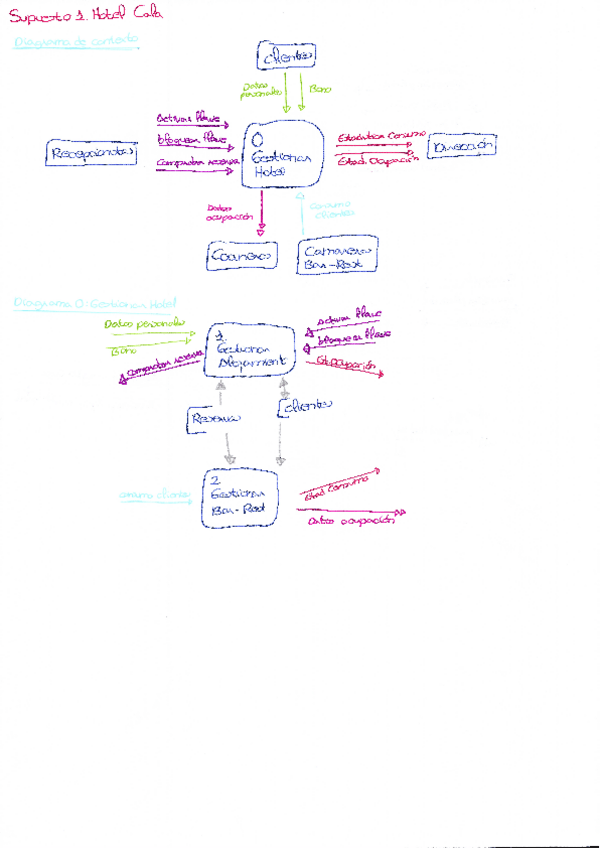 Supuesto 1. Hotel Cala
Diagrama de contexto
Clientes
Datos personales
Bono
Activar llave
bloquear llave
Comprobar reserva
Recepcionistas
0
Gestionar Hotel
Estadística Consumo
Estad. Ocupación
Dirección
Datos ocupación
Consumo clientes
Cocineros
Camareros Bar-Rest
Diagrama 0: Gestionar Hotel
Datos personales
Bono
Comprobar reserva
1.
Gestionar
Alojamient
Activar llave
bloquear llave
Est. Ocupación
Reserva
Clientes
2
Gestionar
Bar-Rest
Consumo clientes
Estad. Consumo
Datos ocupación